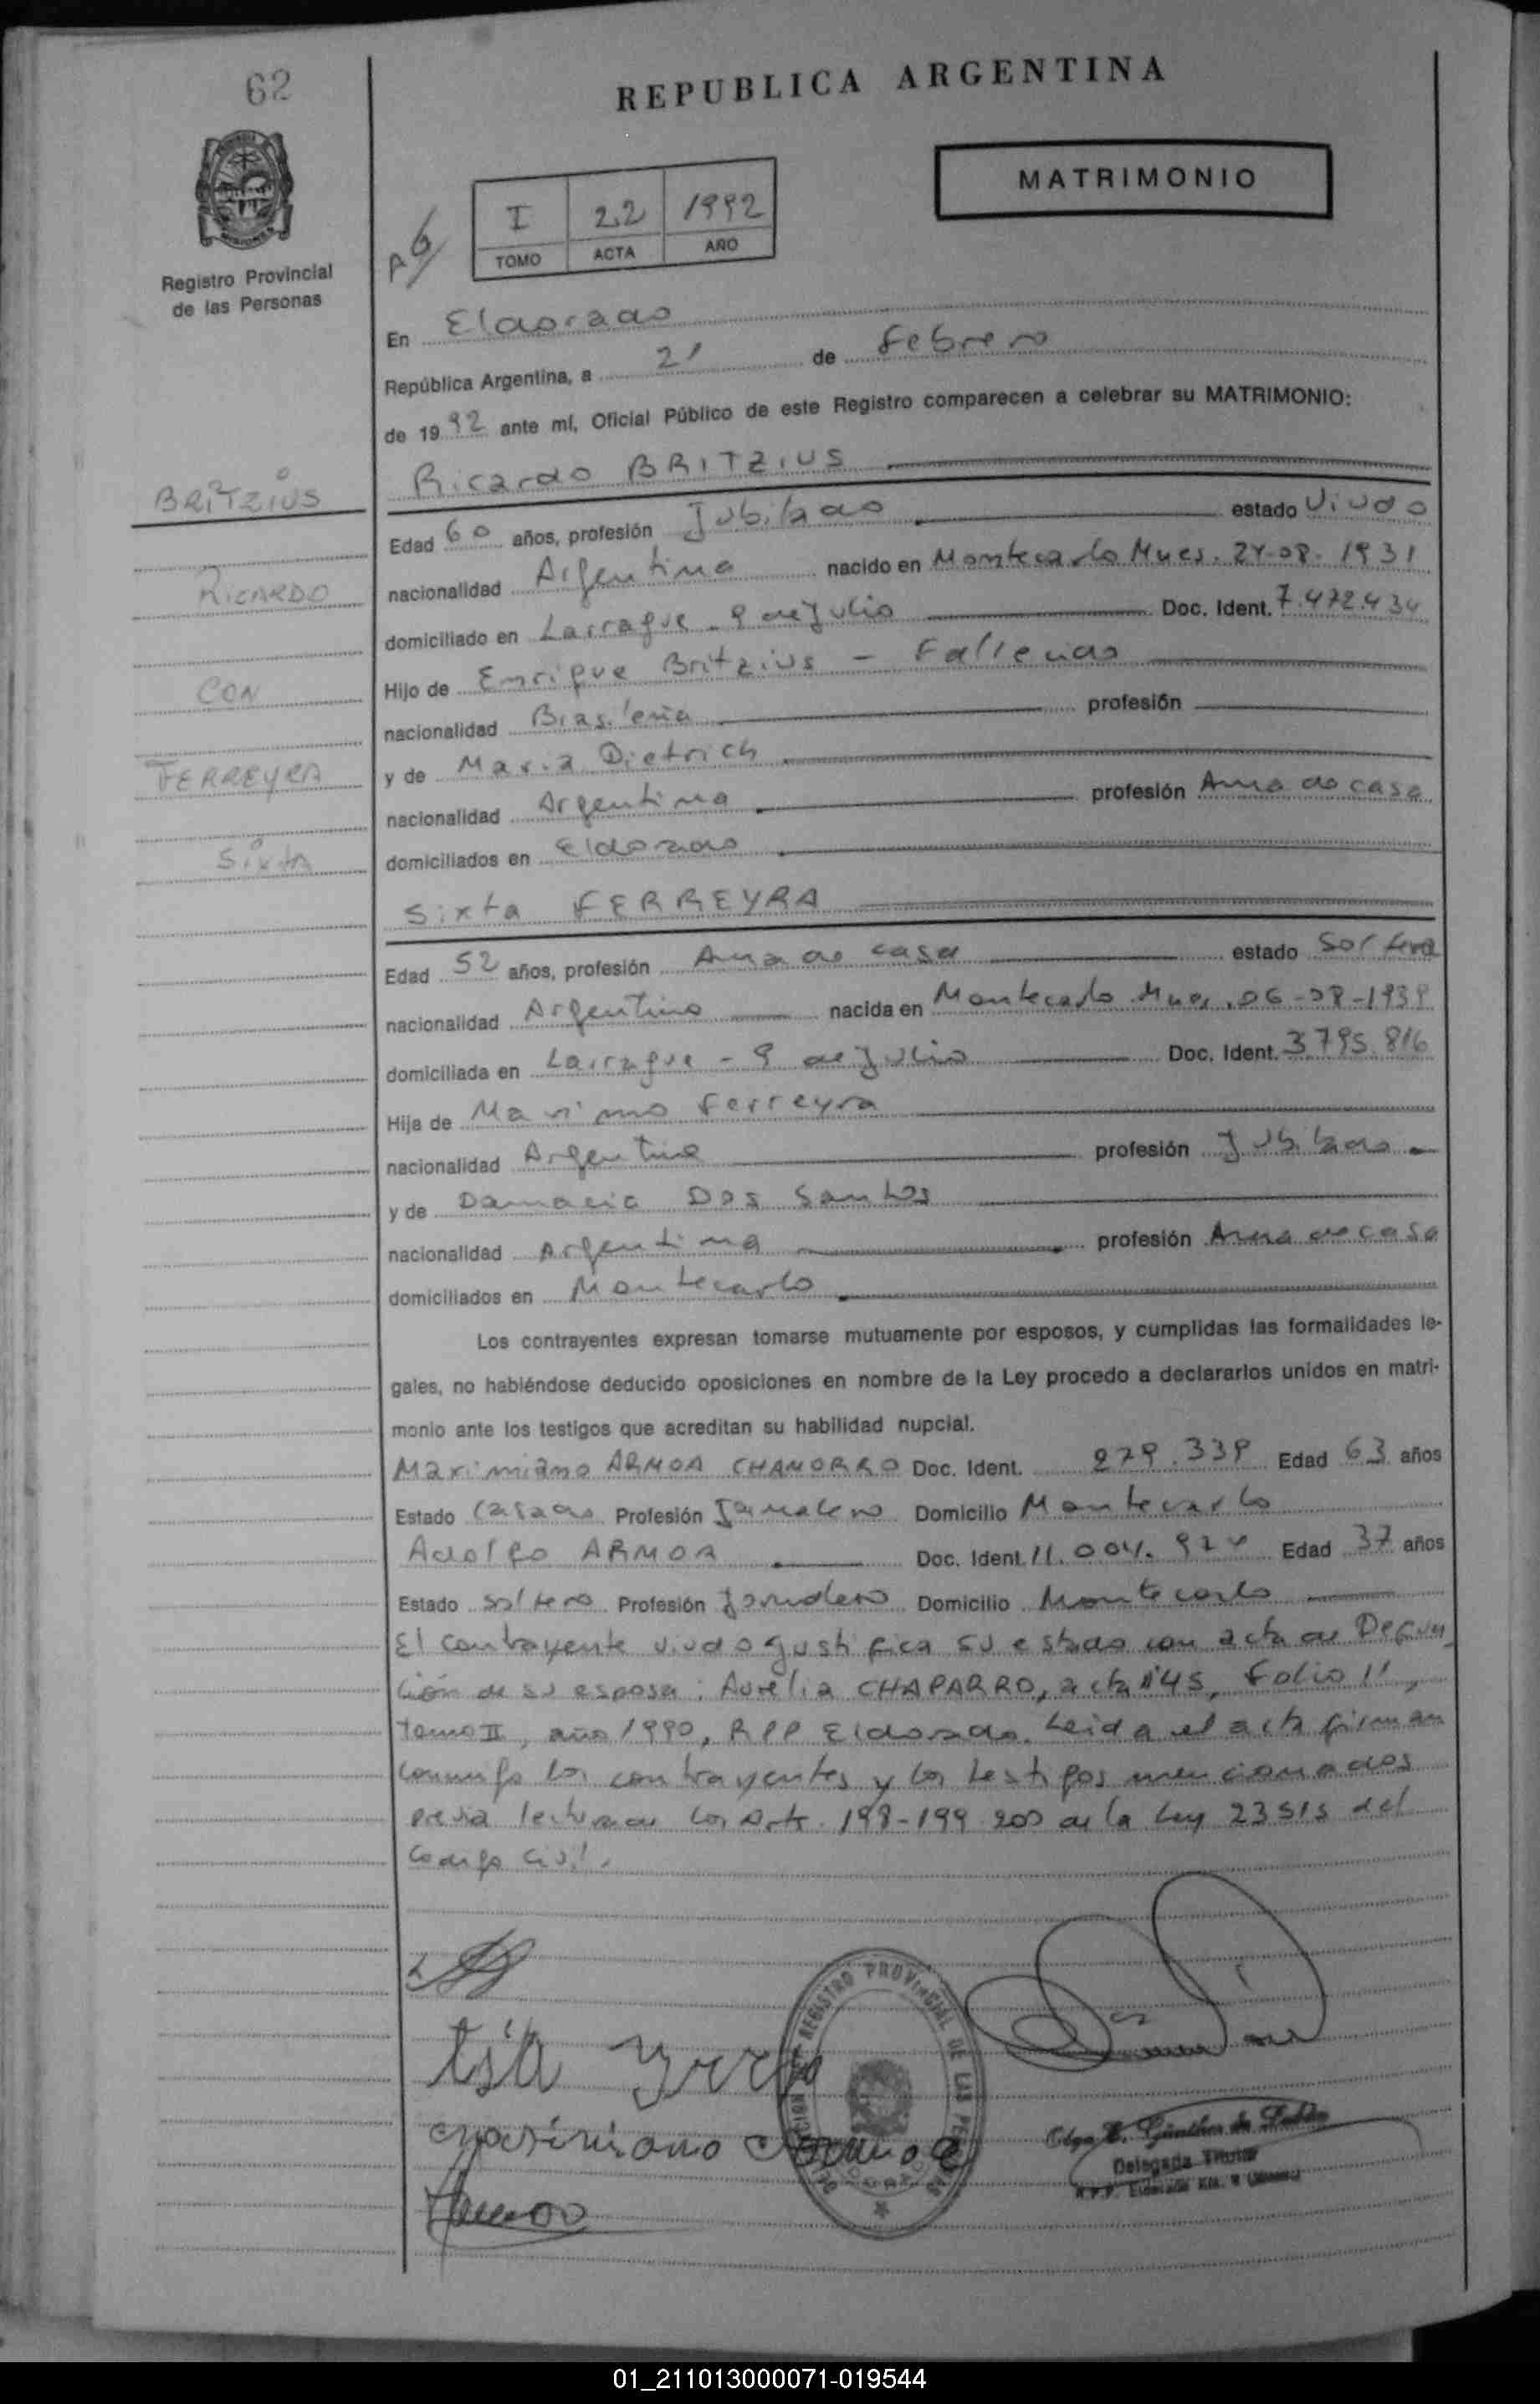 62
REPUBLICA ARGENTINA
MATRIMONIO
I 22 1992
TOMO ACTA AÑO
Registro Provincial
de las Personas
En Eldorado
República Argentina, a 21 de febrero
de 1992 ante mí, Oficial Público de este Registro comparecen a celebrar su MATRIMONIO:
Ricardo BRITZIUS
BRITZIUS
RICARDO
CON
FERREYRA
Sixta
Edad 60 años, profesión Jubilado estado Viudo
nacionalidad Argentina nacido en Montecarlo Mnes. 08-1931
domiciliado en Larrague - 9 de Julio Doc. Ident. 7.472.434
Hijo de Enrique Britzius - Fallecido
nacionalidad Brasileña profesión
y de Maria Dietrich
nacionalidad Argentina profesión Ama de casa
domiciliados en Eldorado
Sixta FERREYRA
Edad 52 años, profesión Ama de casa estado Soltera
nacionalidad Argentina nacida en Montecarlo Mnes. 06-08-1939
domiciliada en Larrague - 9 de Julio Doc. Ident. 3.795.816
Hija de Maximo Ferreyra
nacionalidad Argentina profesión Jubilado
y de Damacia Dos Santos
nacionalidad Argentina profesión Ama de casa
domiciliados en Montecarlo
Los contrayentes expresan tomarse mutuamente por esposos, y cumplidas las formalidades le-
gales, no habiéndose deducido oposiciones en nombre de la Ley procedo a declararlos unidos en matri-
monio ante los testigos que acreditan su habilidad nupcial.
Maximiano ARMOA CHAMORRO Doc. Ident. 279.339 Edad 63 años
Estado Casado Profesión Jornalero Domicilio Montecarlo
Adolfo ARMOA Doc. Ident. 11.004. Edad 37 años
Estado soltero Profesión Jornalero Domicilio Montecarlo
El contrayente viudo justifica su estado con acta de Defun
ción de su esposa: Aurelia CHAPARRO, acta 45, Folio 11,
Tomo II, año 1990, RPP Eldorado. Leida el acta firman
conmigo los contrayentes y los testigos mencionados
previa lectura de los Arts. 198-199 200 de la Ley 23515 del
Codigo Civil.
REGISTRO PROVINCIAL DE LAS PERSONAS
Olga
Delegada Titular
01_211013000071-019544